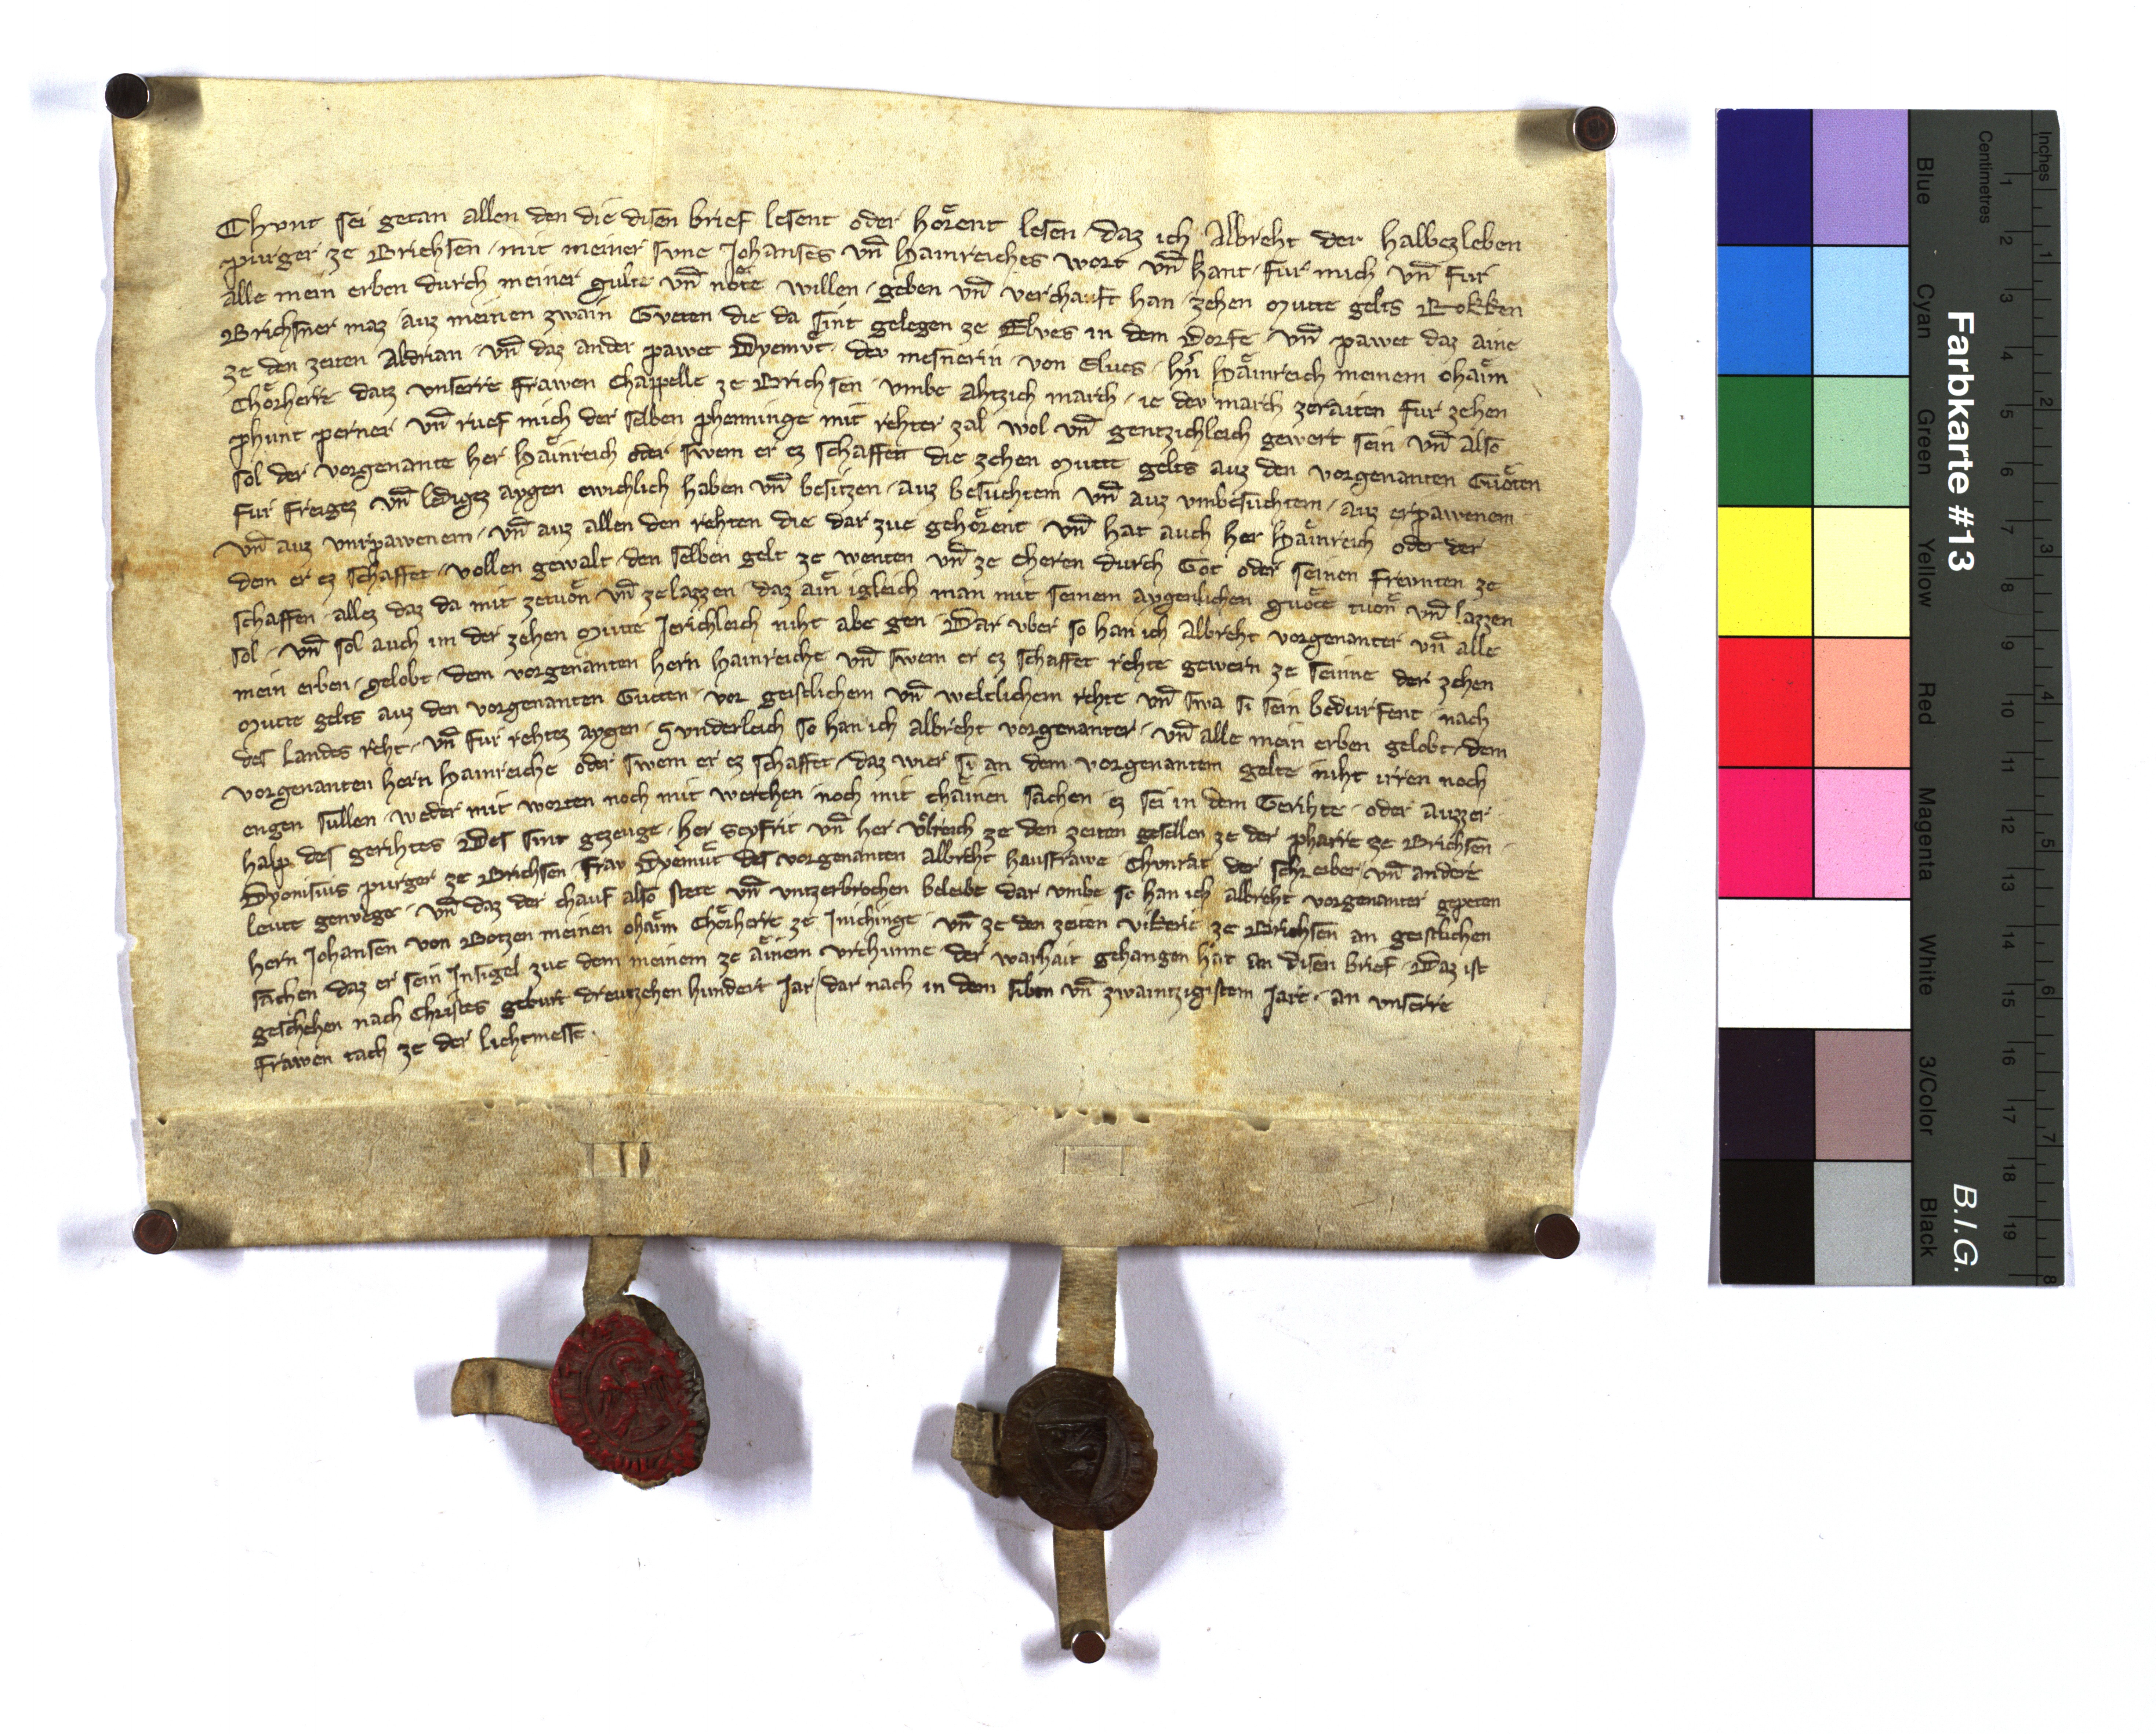 Chvnt sei getan allen den die disen brief lesent oder hoͤrent lesen · daz ich Albreht der halbezleben
purger ze Brichsen · mit meiner svne Johanses vn̄ Hainreiches wort vn̄ hant · fur mich vn̄ fur
alle mein erben durch meiner gulte vn̄ noͤte willen · geben vn̄ verchauft han · zehen mutte gelts Rokken
Brichsner maz auz meinen zwain Gveten die da sint gelegen ze Elves in dem dorfe · vn̄ pawet daz aine
ze den zeiten Aldrian · vn̄ daz ander pawet Dyemvͤt · dev mesnerin · von Elves · hˀn Haͤinreich meinem ohaͤim
Choͤrherre datz vnserre frawen Chappelle ze Brichsen · vmbe ahtzich march · ie dev march zeraiten fur zehen
phunt perner · vn̄ rvef mich der selben phenninge mit rehter zal wol vn̄ gentzichleich gewert sein · vn̄ also
sol der vorgenante her Haͤinreich oder swem er ez schaffett die zehen mutte gelts auz den vorgenanten Guͦten
fur freigez vn̄ ledigez aygen ewichlich haben vn̄ besitzen · auz besuchtem · vn̄ auz vmbesuchtem · auz erpawenem
vn̄ auz vnrpawenem · vn̄ auz allen den rehten die dar zue gehoͤrent · vn̄ hat auch her Haͤinreich oder der
dem er ez schaffet · vollen gewalt · den selben gelt ze wenten vn̄ ze cheren durch Got oder seinen frevnten ze
schaffen · allez daz da mit zetuͦn vn̄ zelazzen · daz ain igleich man mit seinem aygenlichen guͦte tuͦn vn̄ lazzen
sol · vn̄ sol auch im der zehen mutte Jerichleich niht abe gen · Dar vber so han ich albreht vorgenanter vn̄ alle
mein erben · gelobt · dem vorgenanten hern Hainreiche vn̄ swem er ez schaffet rehte gewern ze seinne der zehen
mutte gelts auz den vorgenanten Gueten · vor geistlichem vn̄ weltlichem rehte vn̄ swa si sein bedurfent · nach
des landes reht · vn̄ fur rehtez aygen · Svnderleich so han ich albreht vorgenanter · vn̄ alle mein erben gelobt · dem
vorgenanten hern Hainreiche oder swem er ez schaffet · daz wier si an dem vorgenantem gelte niht irren noch
engen sullen · weder mit worten noch mit werchen noch mit chaͤinen sachen · ez sei in dem Gerihte · oder auzzer
halp des gerihtes Des sint gezeuge · her Seyfrit vn̄ her Vͦlreich ze den zeiten gesellen ze der pharre ze Brichsen ·
Dyonisius purger ze Brichsen · fraw Dyemuͤt des vorgenanten albreht hausfrawe · Chvnrat der schreiber · vn̄ andere
leute genvͤge · vn̄ daz der chauf also stete vn̄ vntzerbrochen beleibe dar vmbe so han ich albreht vorgenanter gepeten
hern Johansen von Botzen meinen ohaͤim Choͤrherre ze Inichinge · vn̄ ze den zeiten vikerie ze Brichsen an geistlichen
sachen daz er sein Insigel zue dem meinem ze aͤinem vrchunne der warhait gehangen hat an disen brief · Daz ist
geschehen nach Christes geburt dreutzehen hundert Jar / dar nach in dem siben vn̄ zwaintzigistem Jare · an vnserre
frawen tach ze der liechtmesse ·
Farbkarte #13
B.I.G.
Blue Cyan Green Yellow Red Magenta White 3/Color Black
Centimetres 1 2 3 4 5 6 7 8 9 10 11 12 13 14 15 16 17 18 19
Inches 1 2 3 4 5 6 7 8